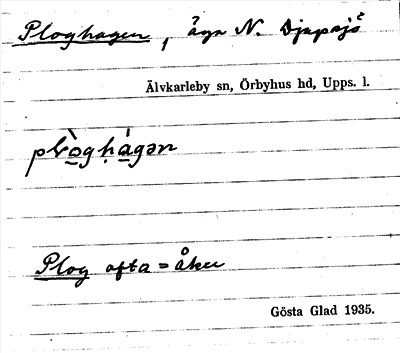 Ploghagen, äga N. Djupsjö
Älvkarleby sn, Örbyhus hd, Upps. l.
plògḥágən
Plog ofta = åker
Gösta Glad 1935.